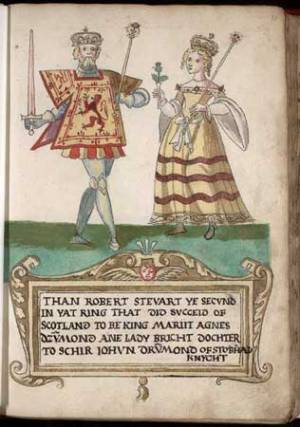 THAN ROBERT STEVART YE SECVND
IN YAT RING THAT DID SVCCEID OF
SCOTLAND TO BE KING MARIIT AGNES
DRVMOND ANE LADY BRICHT DOCHTER
TO SCHIR IOHVN DRVMOND OF STOBHAL
KNYCHT